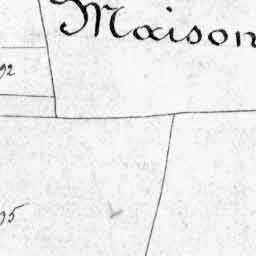 Maison
92
95